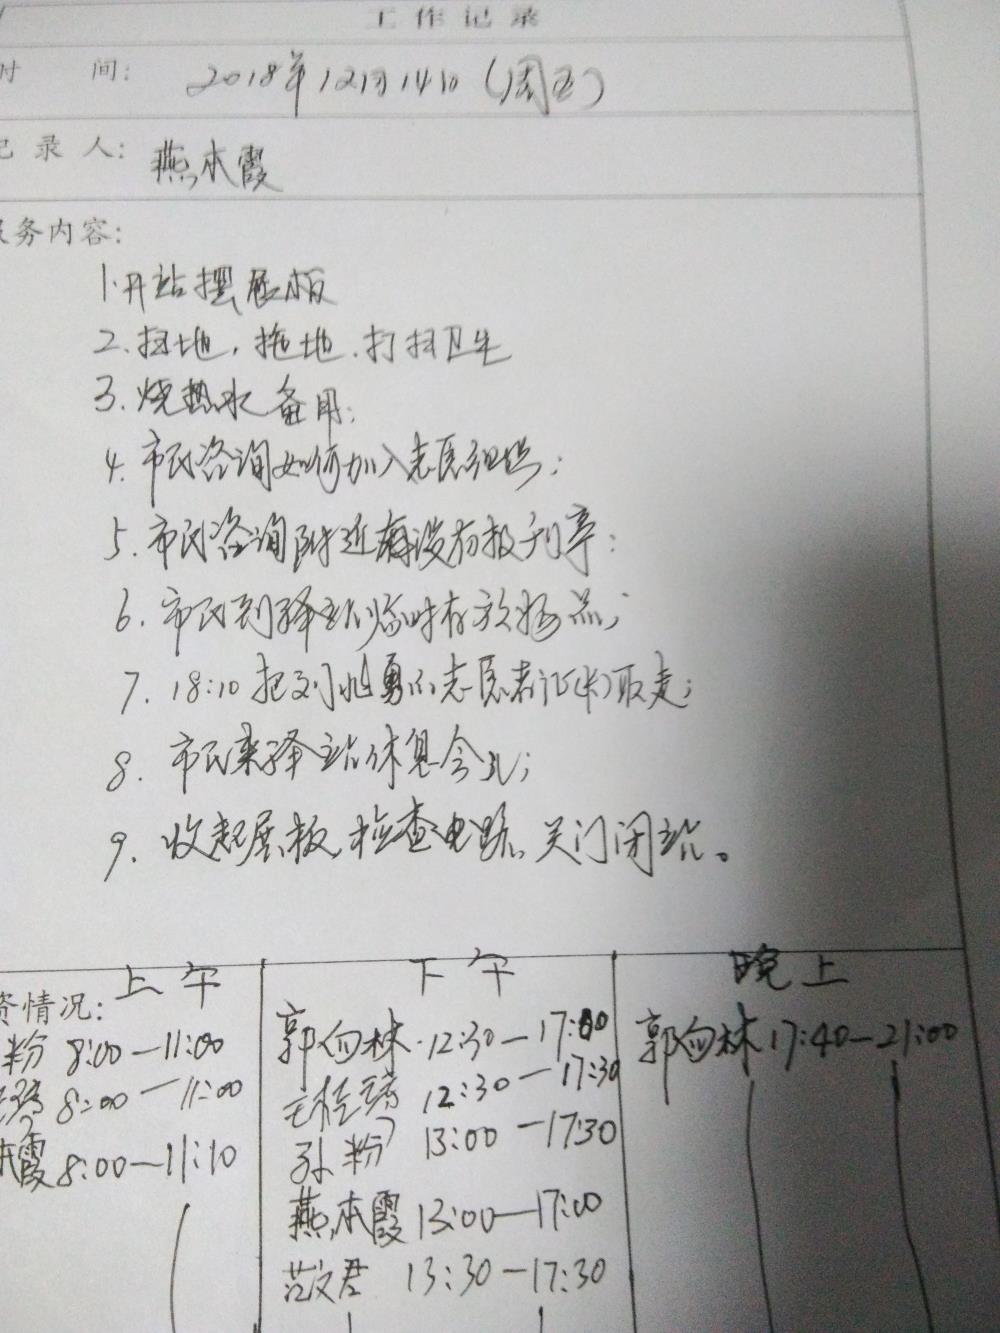 工作记录
时 间: 2018年12月14日(周五)
记录人: 燕本霞
服务内容:
1.开站摆展板
2.扫地,拖地.打扫卫生
3.烧热水备用;
4.市民咨询如何加入志愿组织;
5.市民咨询附近有没有报刊亭;
6.市民到驿站临时存放物品;
7.18:10把刘旭勇的志愿者证(卡)取走;
8.市民来驿站休息会儿;
9.收起展板,检查电路,关门闭站。
上午
情况:
粉 8:00—11:00
8:00—11:00
本霞 8:00—11:10
下午
郭向林 12:30—17:00
12:30—17:30
孙粉 13:00—17:30
燕本霞 13:00—17:00
范文君 13:30—17:30
晚上
郭向林 17:40—21:00